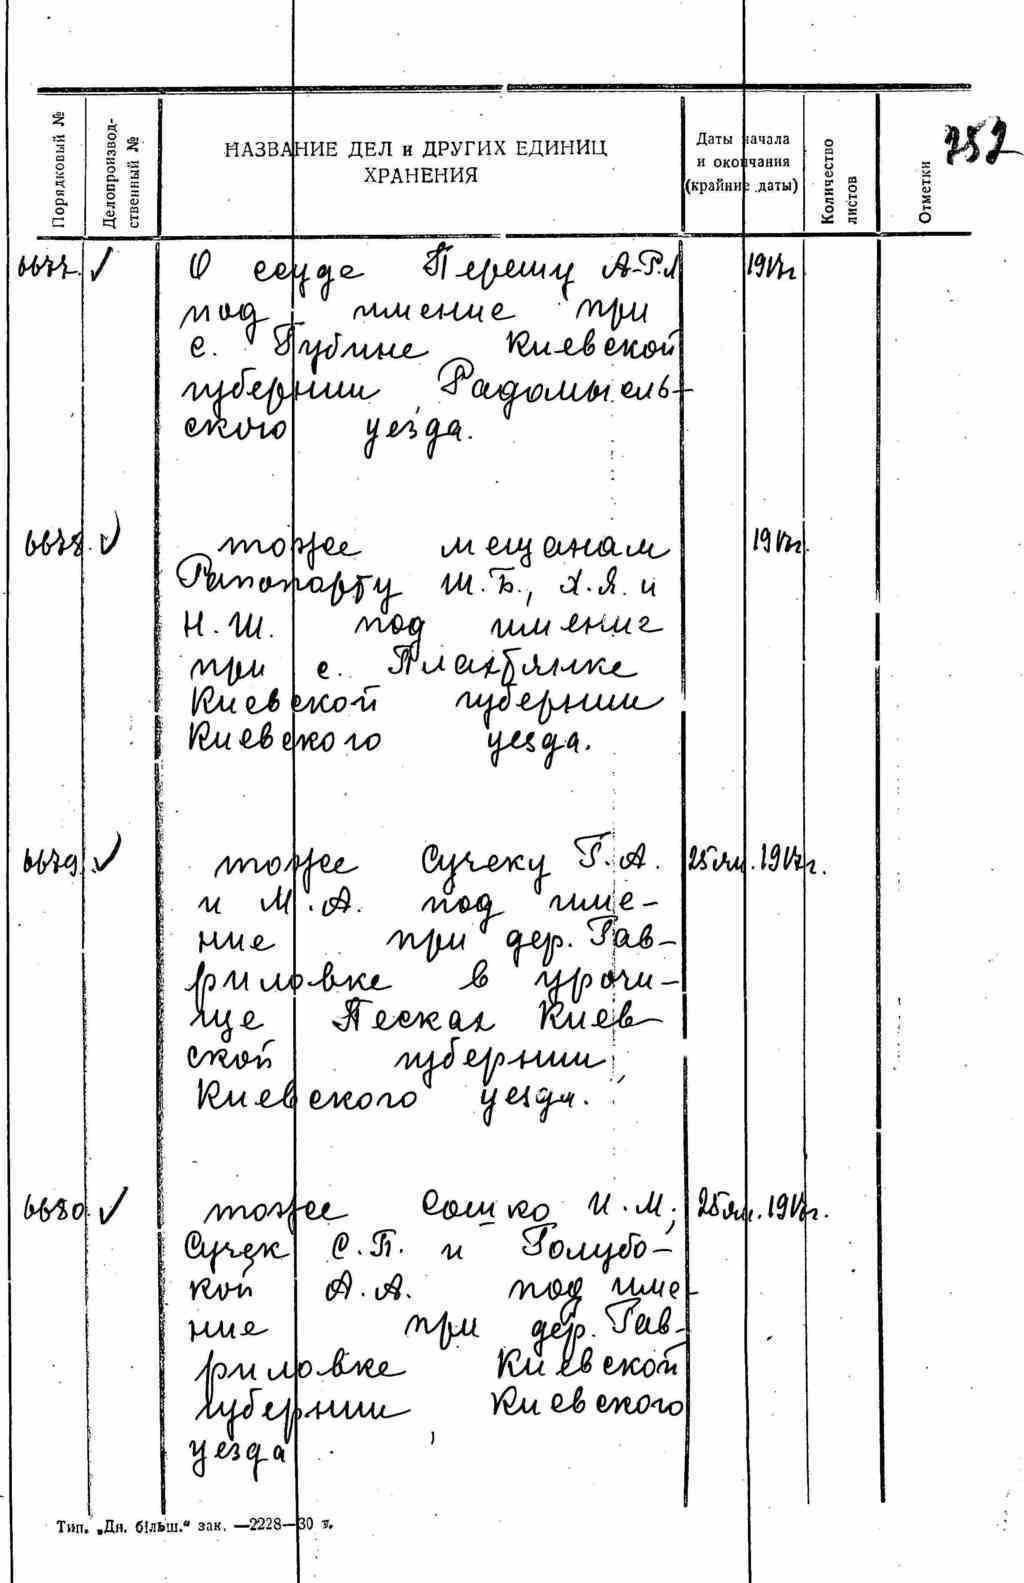 352
Порядковый №
Делопроизвод-
ственный №
НАЗВАНИЕ ДЕЛ и ДРУГИХ ЕДИНИЦ
ХРАНЕНИЯ
Даты начала
и окончания
(крайние даты)
Количество
листов
Отметки
6677. ✓ О ссуде Перешу А-Р.Л 1917г
под имение при
с. Губине Киевской
губернии Радомысль-
ского уезда.
6678. ✓ тожее мещанам 1917г.
Рапопорту Ш.Б., Х.Я. и
Н.Ш. под имение
при с. Плахтянке
Киевской губернии
Киевского уезда.
6679. ✓ тожее Сучеку Г.А. 25 ян. 1917г.
и М.А. под име-
ние при дер. Гав-
риловке в урочи-
ще Песках Киев-
ской губернии
Киевского уезда.
6680. ✓ тожее Сошко И.М., 25 ян. 1917г.
Сучек С.П. и Голубо-
кой А.А. под име-
ние при дер. Гав-
риловке Киевской
губернии Киевского
уезда
Тип. „Дн. більш.“ зак. —2228—30 г.